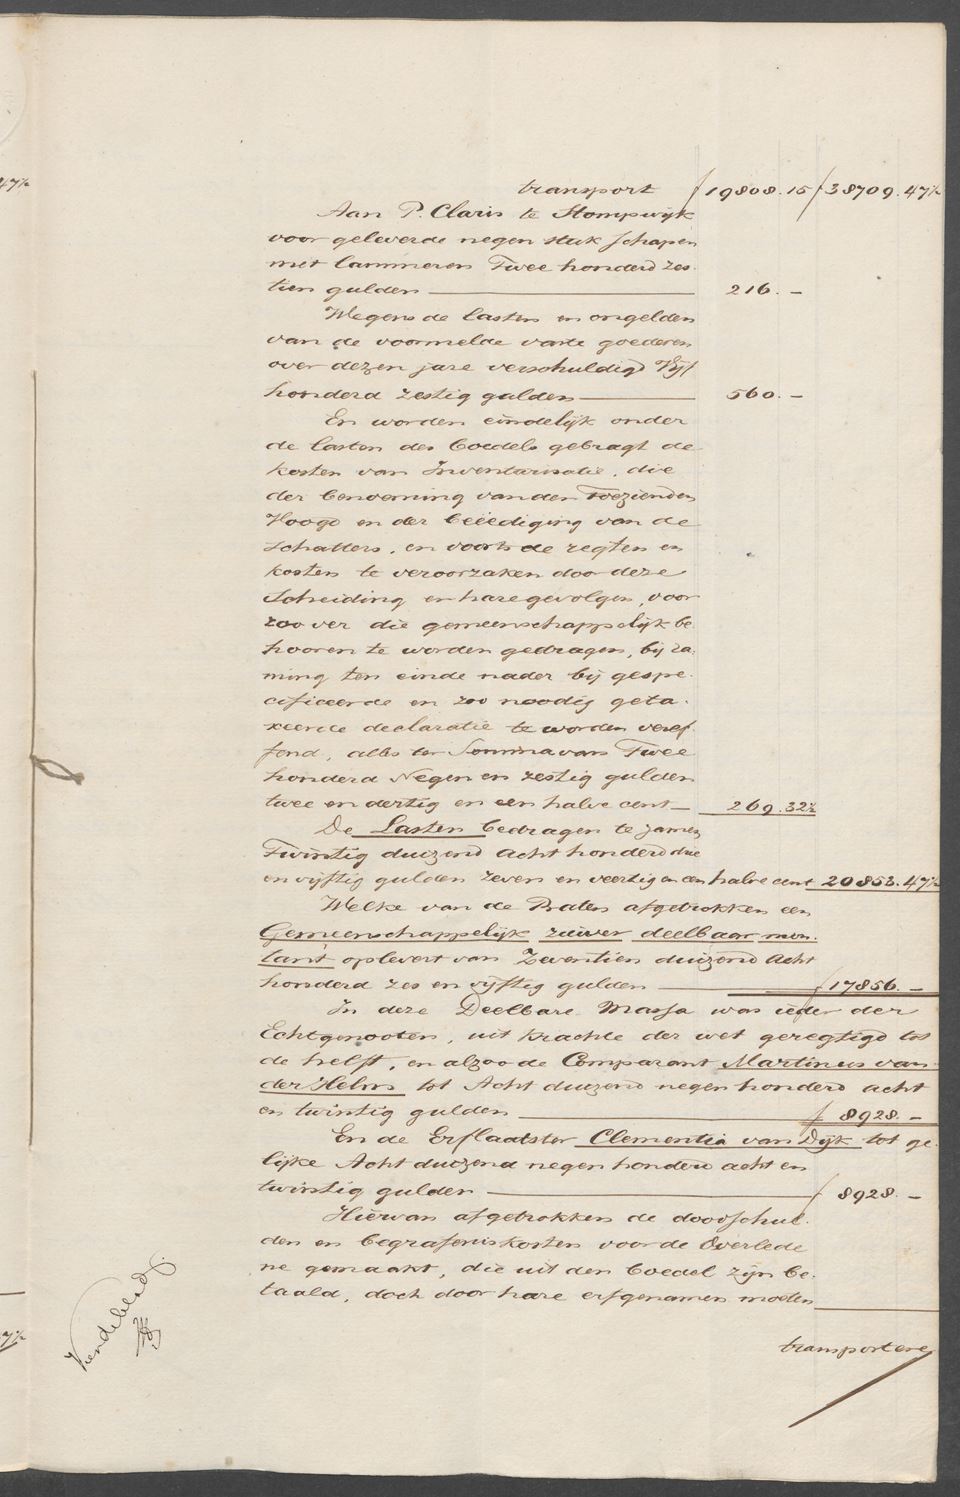 transport ƒ 19808.15 ƒ 38709.47½
Aan P. Claris te Stompwijk
voor geleverde negen stuk schapen
met lammeren Twee honderd zes-
tien gulden 216.–
Wegens de lasten en ongelden
van de voormelde vaste goederen
over dezen jare verschuldigd Vijf
honderd zestig gulden 560.–
En worden eindelijk onder
de lasten des boedels gebragt de
kosten van Inventarisatie, die
der benoeming van den Toezienden
Voogd en der beëediging van de
schatters, en voorts de regten en
kosten te veroorzaken door deze
Scheiding en hare gevolgen, voor
zoo ver die gemeenschappelijk be-
hooren te worden gedragen, bij ra-
ming ten einde nader bij gespe-
cificeerde en zoo noodig geta-
xeerde declaratie te worden veref-
fend, alles ter Somma van Twee
honderd Negen en zestig gulden
twee en dertig en een halve cent 269.32½
De Lasten bedragen te zamen
Twintig duizend Acht honderd drie
en vijftig gulden zeven en veertig en een halve cent 20853.47½
Welke van de Baten afgetrokken een
Gemeenschappelijk zuiver deelbaar mon-
tant oplevert van Zeventien duizend Acht
honderd zes en vijftig gulden ƒ 17856.–
In deze Deelbare Massa was ieder der
Echtgenooten, uit krachte der wet geregtigd tot
de helft, en alzoo de Comparant Martinus van
der Helm tot Acht duizend negen honderd acht
en twintig gulden ƒ 8928.–
En de Erflaatster Clementia van Dijk tot ge-
lijke Acht duizend negen honderd acht en
twintig gulden ƒ 8928.–
Hiervan afgetrokken de doodschul-
den en begrafeniskosten voor de Overlede
ne gemaakt, die uit den boedel zijn be-
taald, doch door hare erfgenamen moeten
transportere